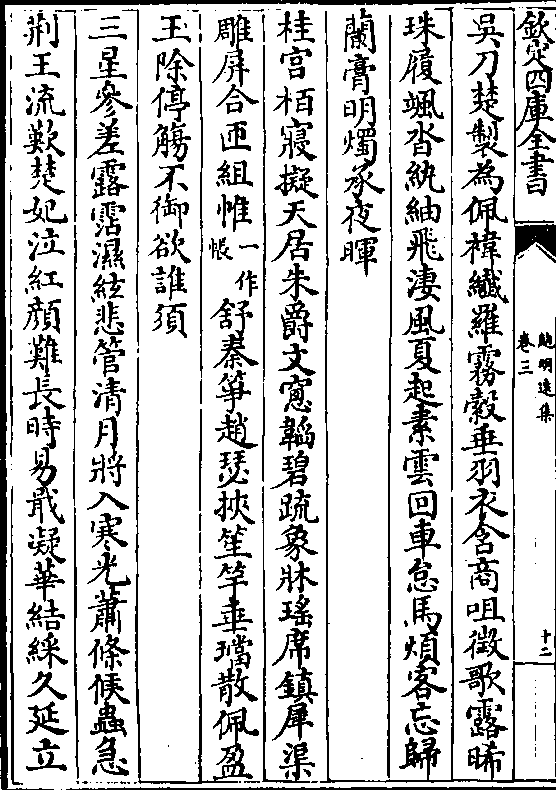 欽定四庫全書
鮑明遠集
卷三
十二
吳刀楚製為佩褘纖羅霧縠垂羽衣含商咀徵歌露晞
珠履颯沓紈紬飛淒風夏起素雲回車怠馬煩客忘歸
蘭膏明燭承夜暉
桂宮栢寢擬天居朱爵文窻韜碧疏象牀瑤席鎮犀渠
雕屏合匝組惟一作帳舒秦箏趙瑟挾笙竽垂璫散佩盈
玉除停觴不御欲誰須
三星參差露霑濕絃悲管清月將入寒光蕭條候蟲急
荆王流歎楚妃泣紅顔難長時易戢凝華結綵久延立